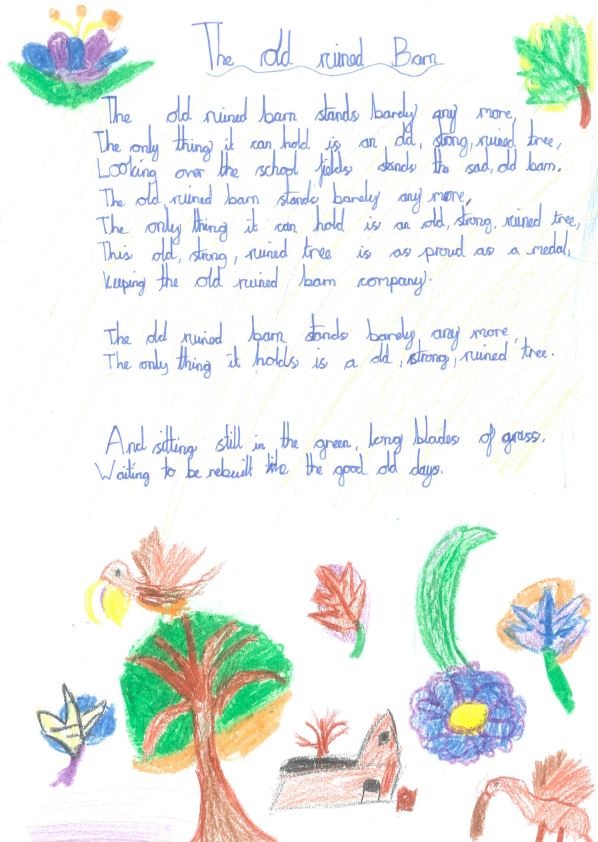 The old ruined Barn
The old ruined barn stands barely any more,
The only thing it can hold is an old, strong, ruined tree,
Looking over the school fields stands the sad, old barn.
The old, ruined barn stands barely any more,
The only thing it can hold is an old, strong, ruined tree,
This old, strong, ruined tree is as proud as a medal,
Keeping the old ruined barn company.
The old ruined barn stands barely any more,
The only thing it holds is a old, strong, ruined tree.
And sitting still in the green, long blades of grass.
Waiting to be rebuilt like the good old days.